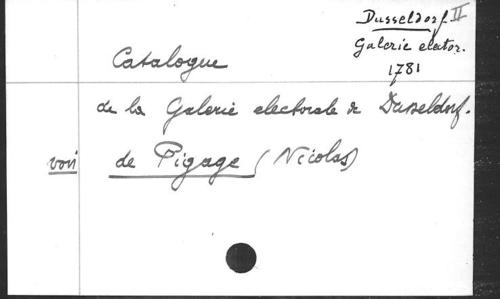 Dusseldorf. II
Galerie elector.
1781
Catalogue
de la Galerie electorale de Dusseldorf.
voir de Pigage (Nicolas)